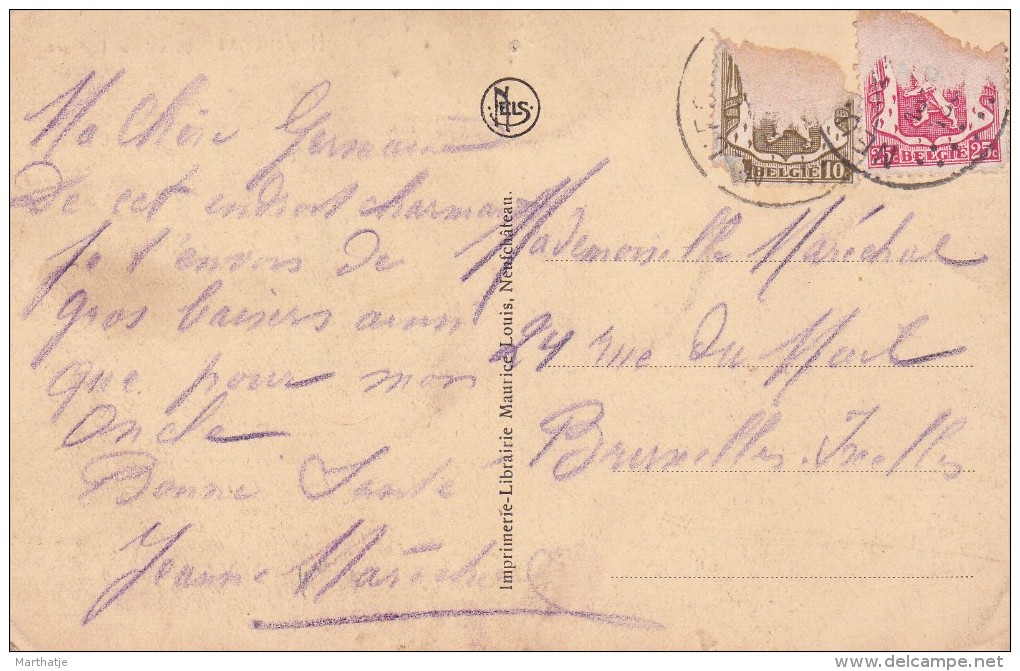 Ma Chère Germaine
De cet endroit charmant
je t'envois de
gros baisers ainsi
que pour mon
Oncle
Bonne Santé
Jeanne Maréchal
NELS
Imprimerie-Librairie Maurice Louis, Neufchâteau.
BELGIE 10c
25c BELGIE 25c
Mademoiselle Maréchal
24 rue du Mail
Bruxelles-Ixelles
Marthatje
delcampe.net